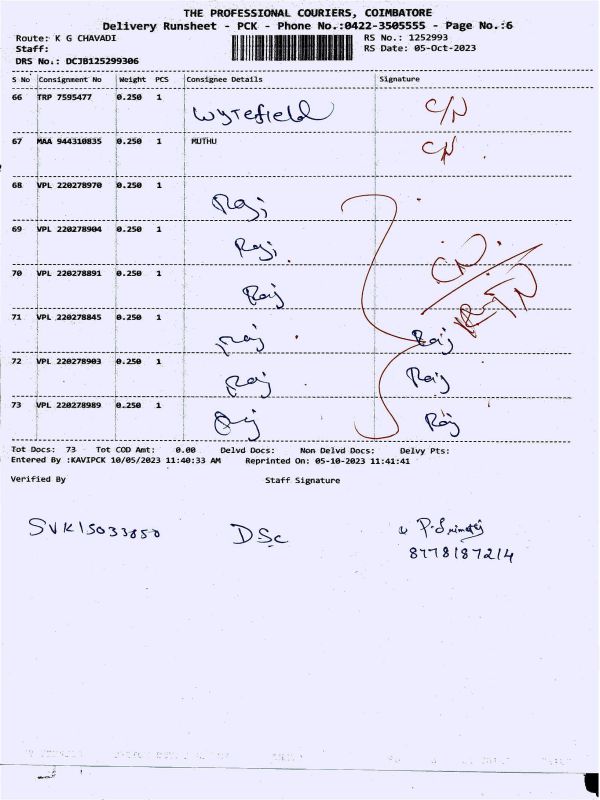 THE PROFESSIONAL COURIERS, COIMBATORE
Delivery Runsheet - PCK - Phone No.:0422-3505555 - Page No.:6
Route: K G CHAVADI RS No.: 1252993
Staff: RS Date: 05-Oct-2023
DRS No.: DCJB125299306
S No Consignment No Weight PCS Consignee Details Signature
66 TRP 7595477 0.250 1 Wyrefield C/N
67 MAA 944310835 0.250 1 MUTHU CN
68 VPL 220278970 0.250 1 Raj
69 VPL 220278904 0.250 1 Raj CN
70 VPL 220278891 0.250 1 Raj RTN
71 VPL 220278845 0.250 1 Raj Raj
72 VPL 220278903 0.250 1 Raj Raj
73 VPL 220278989 0.250 1 Raj Raj
Tot Docs: 73 Tot COD Amt: 0.00 Delvd Docs: Non Delvd Docs: Delvy Pts:
Entered By :KAVIPCK 10/05/2023 11:40:33 AM Reprinted On: 05-10-2023 11:41:41
Verified By Staff Signature
SVK15033850 DSC
8778187214